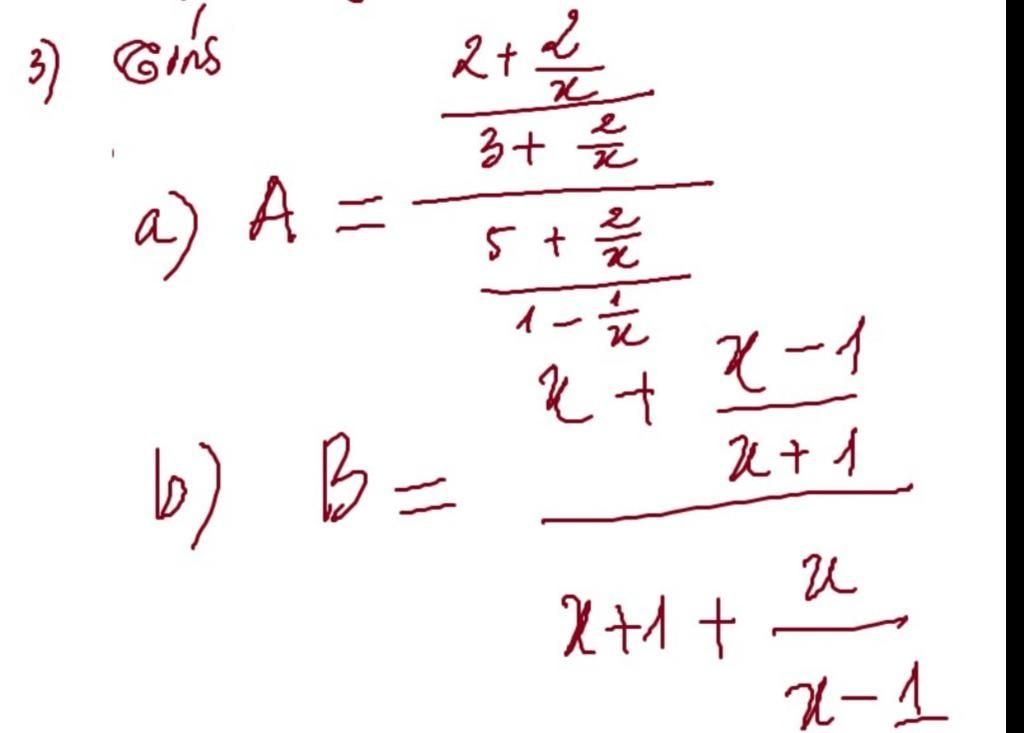 3) Tính
a) A = \frac{\frac{2 + \frac{2}{x}}{3 + \frac{2}{x}}}{\frac{5 + \frac{2}{x}}{1 - \frac{1}{x}}}
b) B = \frac{x + \frac{x - 1}{x + 1}}{x + 1 + \frac{x}{x - 1}}